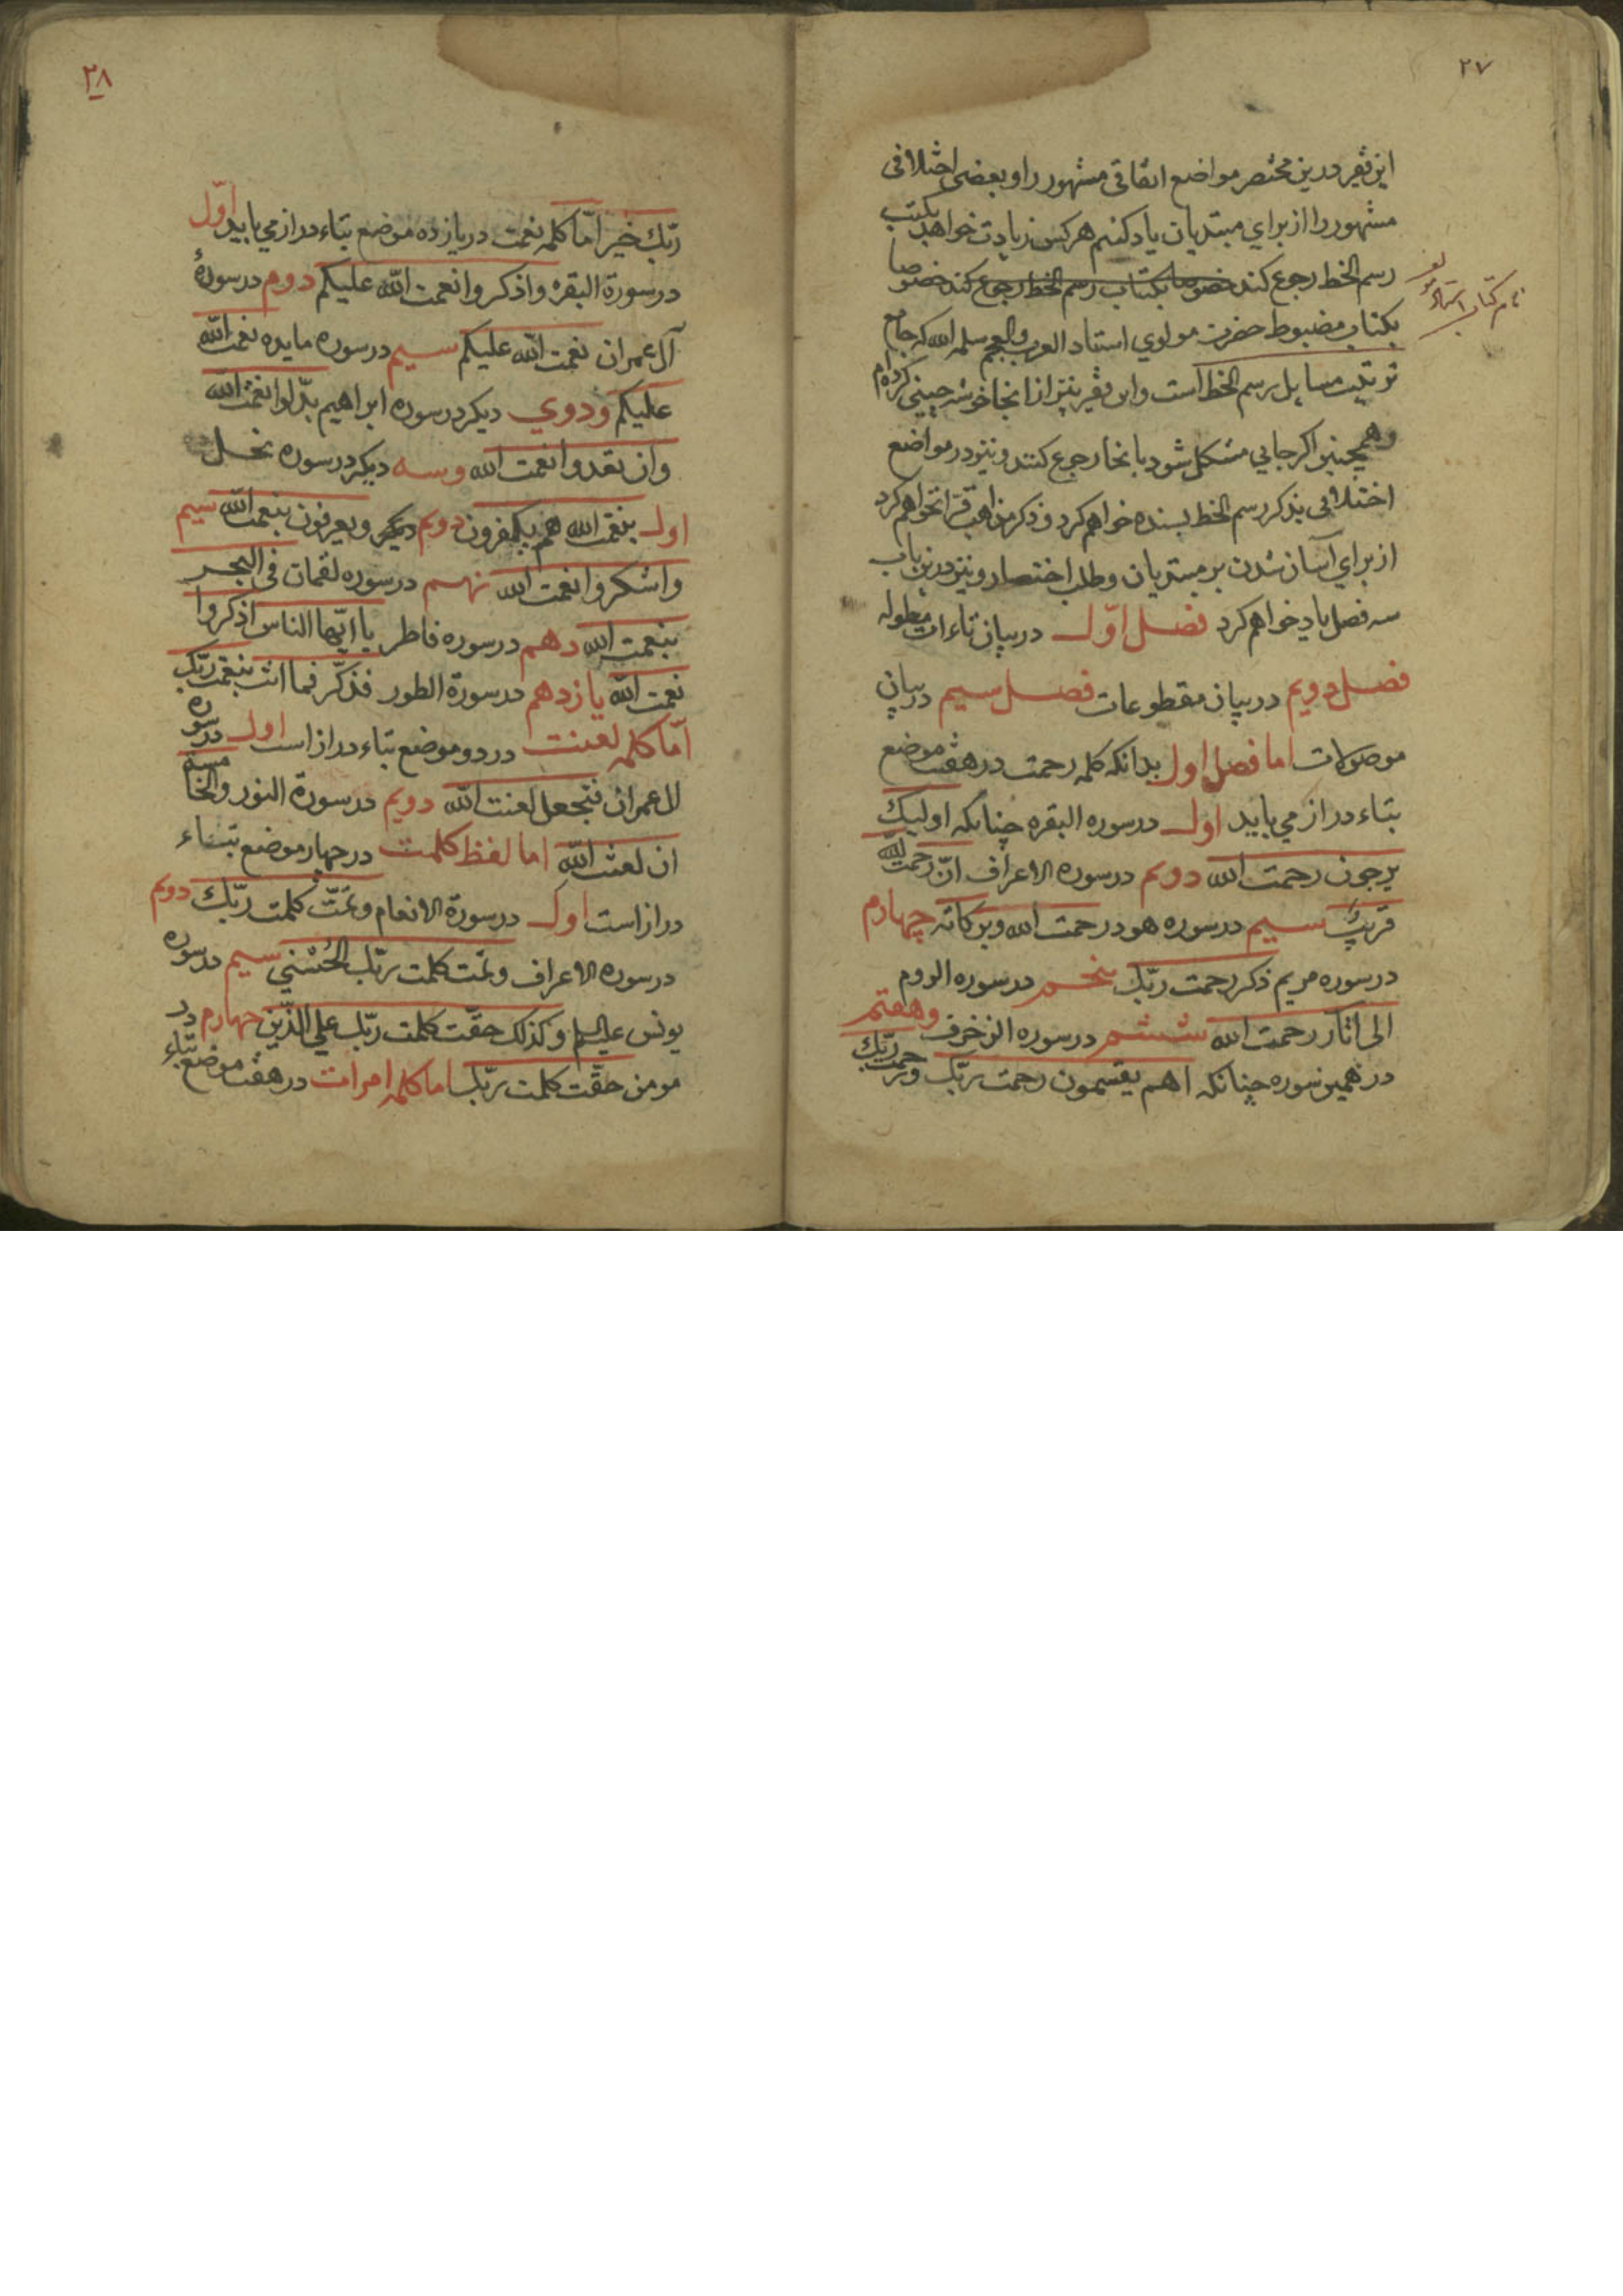 ۲۷
این فقیر درین مختصر مواضع اتفاقی مشهور را و بعضی اختلافی
مشهور را از برای مبتدیان یاد کنیم هر کس زیادت خواهد بکتب
رسم الخط رجوع کند خصوصا بکتاب رسم الخط رجوع کند خصوصا
بکتاب مضبوط حضرت مولوی استاد العرب والعجم سلمه الله که جامع
نام کتاب استاد
ترتیب مسایل رسم الخط است و این فقیر نیز از انجا خوشه چینی کرده‌ام
وهمچنین اکر جایی مشکل شود بانجا رجوع کنند و نیز در مواضع
اختلافی بذکر رسم الخط بسنده خواهم کرد و ذکر مذاهب قرا نخواهم کرد
از برای آسان شدن بر مبتدیان و طلب اختصار و نیز درین باب
سه فصل یاد خواهم کرد فصل اوّل در بیان تاءات مطوله
فصل دویم در بیان مقطوعات فصل سیم در بیان
موصولات اما فصل اول بدانکه کلمه رحمت در هفت موضع
بتاء دراز می باید اول در سوره البقره چنانکه اولیک
یرجون رحمت الله دویم در سوره الاعراف انّ رحمت الله
قریب سیم در سوره هود رحمت الله وبرکاته چهارم
در سوره مریم ذکر رحمت ربّک پنجم در سوره الروم
الی اثار رحمت الله ششم در سوره الزخرف وهفتم
در همین سوره چنانکه اهم یقسمون رحمت ربّک ورحمت ربّک
۲۸
ربّک خیر امّا کلمه نعمت در یازده موضع بتاء دراز می باید اوّل
در سورة البقره واذکروا نعمت الله علیکم دوم در سورهٔ
آل عمران نعمت الله علیکم سیم در سوره مایده نعمت الله
علیکم ودوی دیکر در سوره ابراهیم بدّلوا نعمت الله
وان تعدوا نعمت الله وسه دیکر در سوره نحل
اول بنعمت الله هم یکفرون دویم دیکر ویعرفون نعمت الله سیم
واشکروا نعمت الله نهم در سوره لقمان فی البحر
بنعمت الله دهم در سوره فاطر یا ایّها الناس اذکروا
نعمت الله یازدهم در سورة الطور فذکّر فما انت بنعمت ربّک
امّا کلمه لعنت در دو موضع بتاء دراز است اول در سوره
ال عمران فنجعل لعنت الله دویم در سورة النور والخامسة
ان لعنت الله اما لفظ کلمت در چهار موضع بتاء
دراز است اول در سورة الانعام وتمّت کلمت ربّک دویم
در سوره الاعراف وتمّت کلمت ربّک الحُسْنی سیم در سوره
یونس علیه السلم وکذلک حقّت کلمت ربّک علی الّذین چهارم در
مومن حقّت کلمت ربّک اما کلمه امرات در هفت موضع بتاء